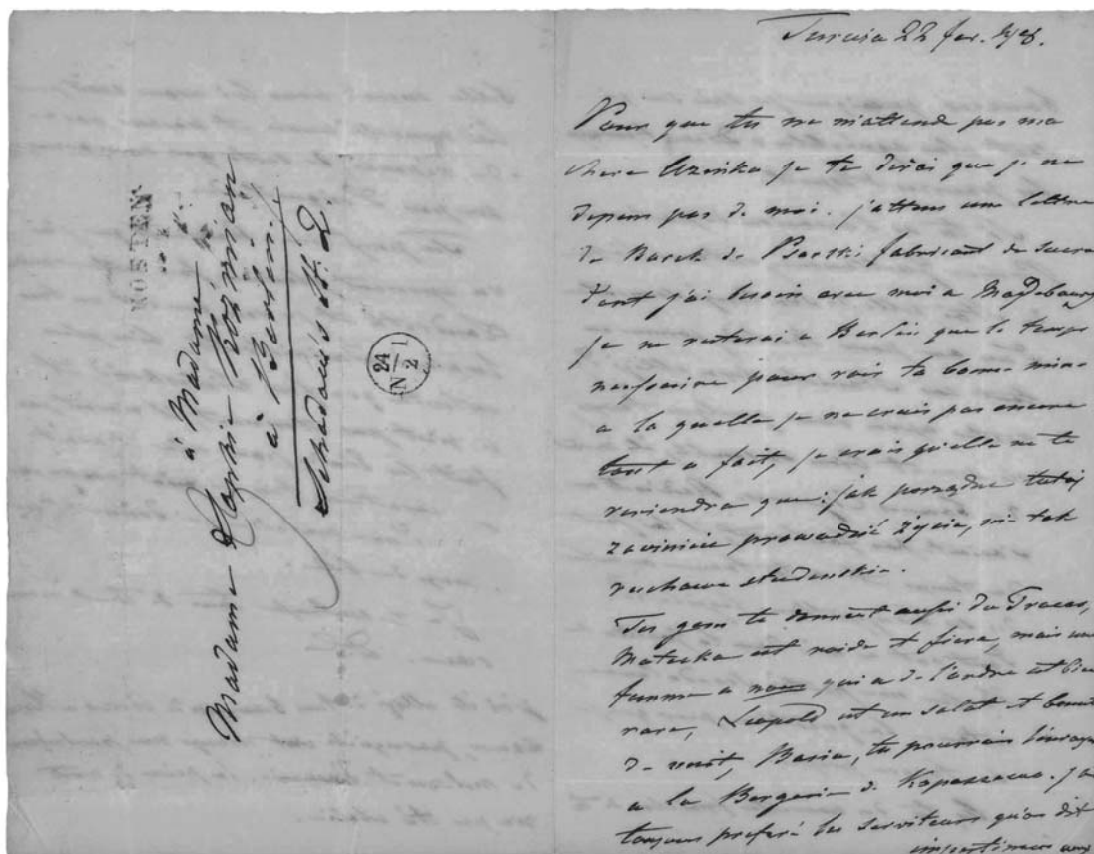 à Madame
Madame Sophie Koźmian
à Berlin.
Schadow's St. 2.
KOSTEN
24
2
N 1
Turwia 22 fev.
Pour que tu ne m'attende pas ma
chere je te dirai que je ne
depens pas de moi. j'attens une lettre
de de fabricant de sucre
dont j'ai besoin avec moi a Magdebourg
je ne resterai a Berlin que le temps
necessaire pour voir ta bonne mine
a la quelle je ne crois pas encore
tout a fait, je crois qu'elle ne te
reviendra que: jak porządne tutaj
zaczniecie prowadzić życie, nie tak
ruchawe studenskie.
Tes gens te donnent aussi du Tracas,
Matecka est roide et fiere, mais une
femme a nous qui a de l'ordre est bien
rare, Leopold est un salot et
de Basia, tu pourrais
a la Bergerie de Kopaszewo. j'ai
toujours preferé les serviteurs qu'on dit
impertinens aux